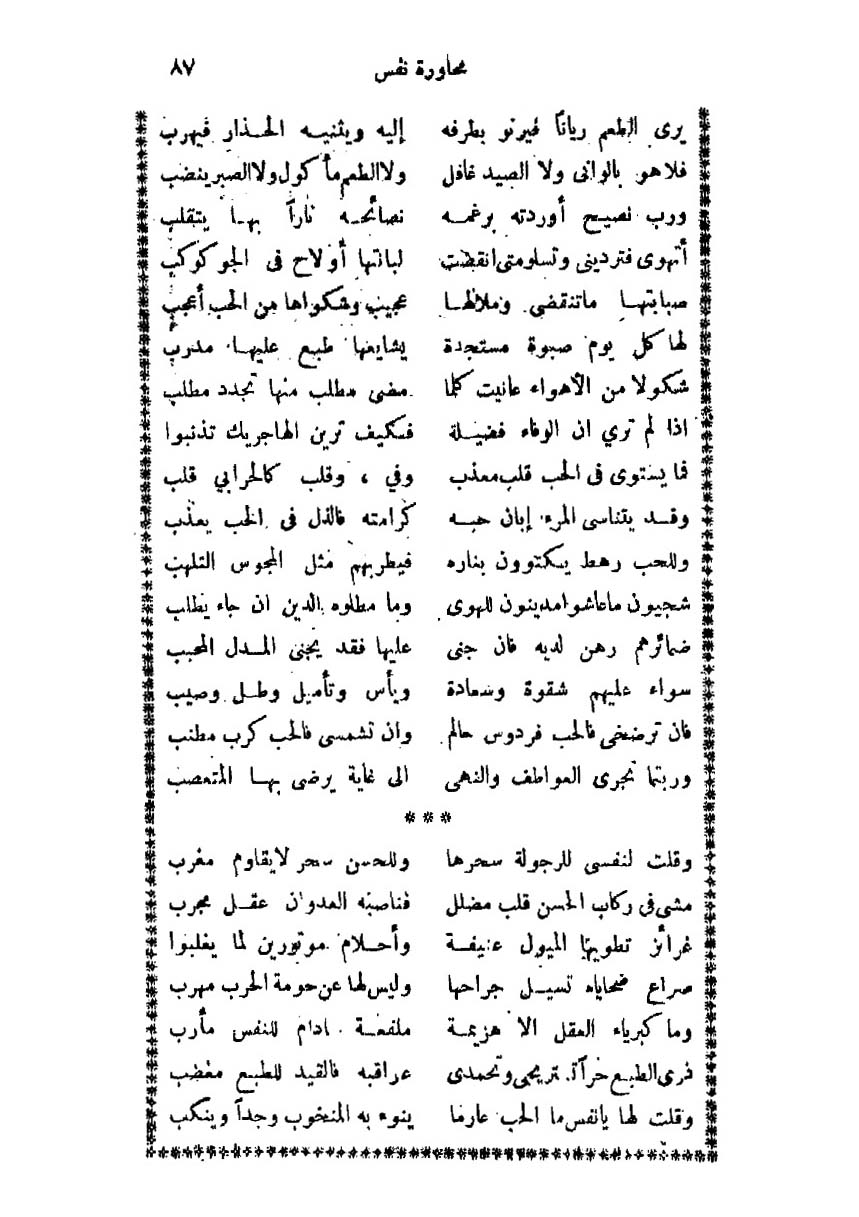 محاورة نفس ٨٧
يرى الطعم رياناً فيرنو بطرفه إليه ويثنيه الحذار فيهرب
فلا هو بالوانى ولا الصيد غافل ولا الطعم مأكول ولا الصبر ينضب
ورب نصيح أوردته برغمه نصائحه ناراً بها يتقلب
أتهوى فترديني وتسلو متى انقضت لباناتها أو لاح فى الجو كوكب
صبابتها ما تنقضى وملالها عجيب وشكواها من الحب أعجب
لها كل يوم صبوة مستجدة يشايعها طبع عليها مدرب
شكولا من الأهواء عانيت كلما مضى مطلب منها تجدد مطلب
اذا لم تري ان الوفاء فضيلة فكيف ترين الهاجريك تذنبوا
فما يستوى فى الحب قلب معذب وفي ، وقلب كالحرابي قلب
وقد يتناسى المرء إبان حبه كرامته فالذل فى الحب يعذب
وللحب رهط يكتوون بناره فيطربهم مثل المجوس التلهب
شجيون ما عاشوا مدينون للهوى وما مطلوه الدين ان جاء يطلب
ضمائرهم رهن لديه فان جنى عليها فقد يجنى المدل المحبب
سواء عليهم شقوة وسعادة ويأس وتأميل وطل وصيب
فان ترضخى فالحب فردوس حالم وان تشمسى فالحب كرب مطنب
وربتما تجرى العواطف والنهى الى غاية يرضى بها المتعصب
***
وقلت لنفسى للرجولة سحرها وللحسن سحر لا يقاوم مغرب
مشى فى ركاب الحسن قلب مضلل فناصبه العدوان عقل مجرب
غرائز تطويها الميول عنيفة وأحلام موتورين لما يغلبوا
صراع ضحاياه تسيل جراحها وليس لها عن حومة الحرب مهرب
وما كبرياء العقل الا هزيمة ملفعة ادام للنفس مأرب
فرى الطبع حرآة تريحى وتحمدى عراقبه فالقيد للطبع مغضب
وقلت لها يا نفس ما الحب عارما ينوء به المنخوب وجداً وينكب